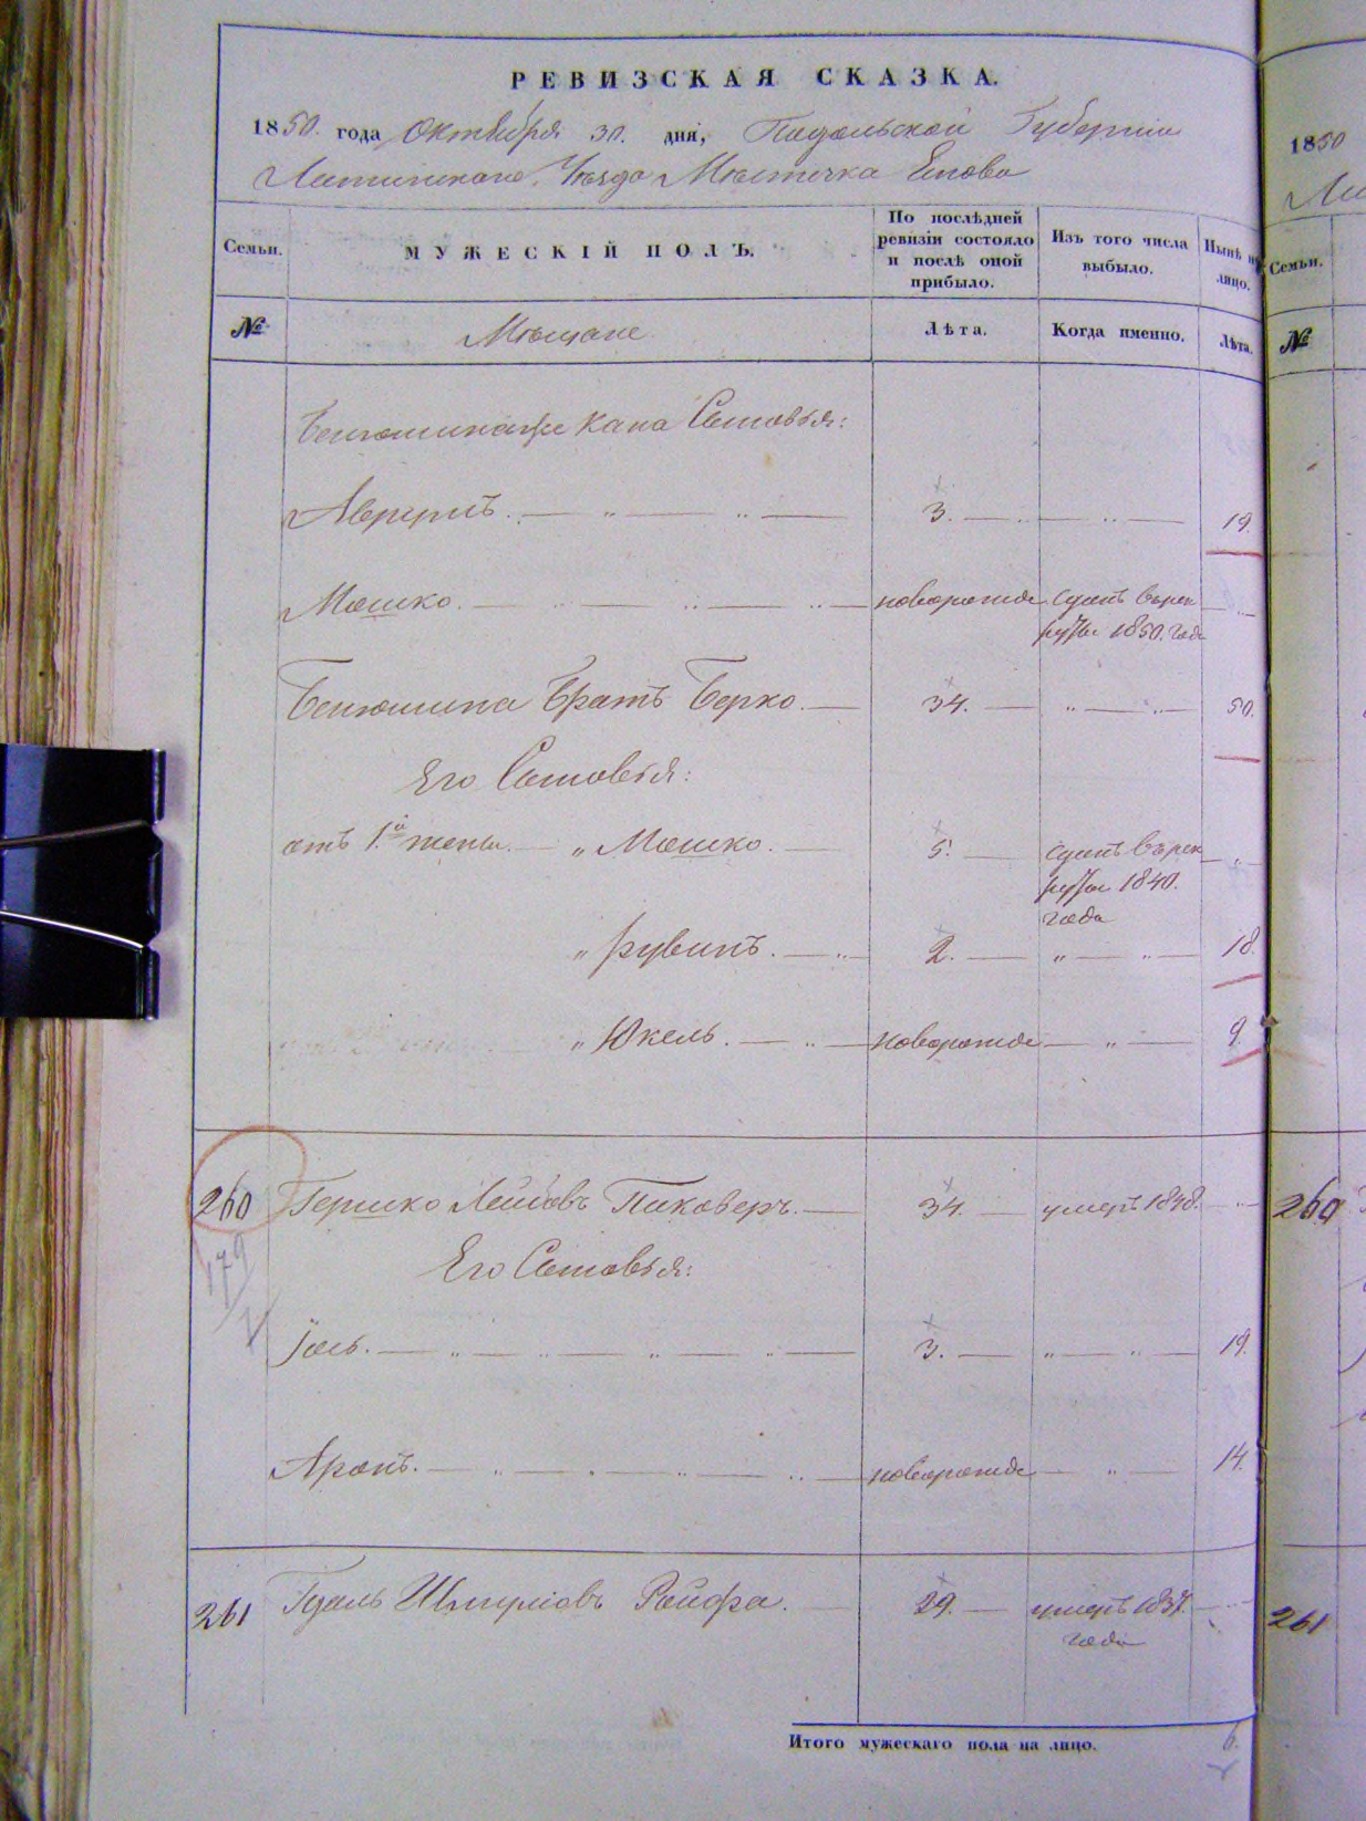 РЕВИЗСКАЯ СКАЗКА.
1850. года Октября 30. дня, Подольской Губернии
Летичевскаго Уезда Местечка
Семьи. МУЖЕСКІЙ ПОЛЪ. По послѣдней ревизіи состояло и послѣ оной прибыло. Изъ того числа выбыло. Нынѣ на лицо.
№ Мещане Лѣта. Когда именно. Лѣта.
Сыновья:
Аврумъ. 3. 19.
Мошко. новорожде сданъ врек
руты 1850. года
Бенюмина братъ Берко. 34. 50.
Его Сыновья:
отъ 1й жены. „ Мошко. 5. сданъ врек
руты 1840.
года
„ Рувинъ. 2. 18.
„ Юкель. новорожде 9.
260 Гершко Лейбовъ Пиковеръ. 34. умеръ 1848.
179
Его Сыновья:
Іось. 3. 19.
Аронъ. новорожде 14.
261 29. умеръ 1837.
года
Итого мужескаго пола на лицо. 6.
1850
Ле
Семьи.
№
260
261